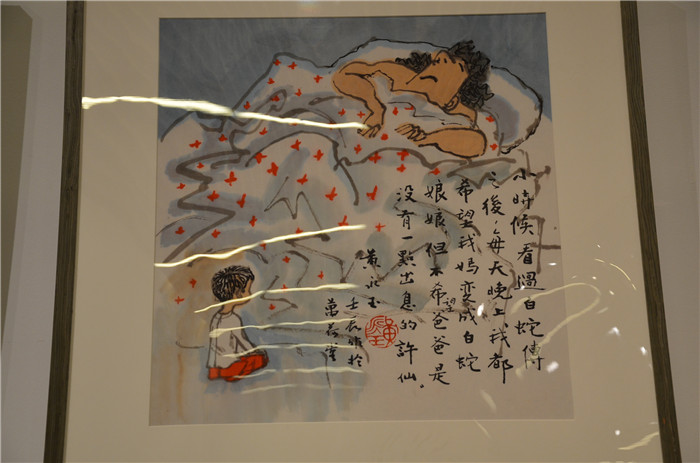 小時候看過白蛇傳
之後，每天晚上我都
希望我媽變成白蛇
娘娘，但不希望爸爸是
没有一點出息的許仙。
黃永玉
壬辰作於
萬荷堂
黃永玉